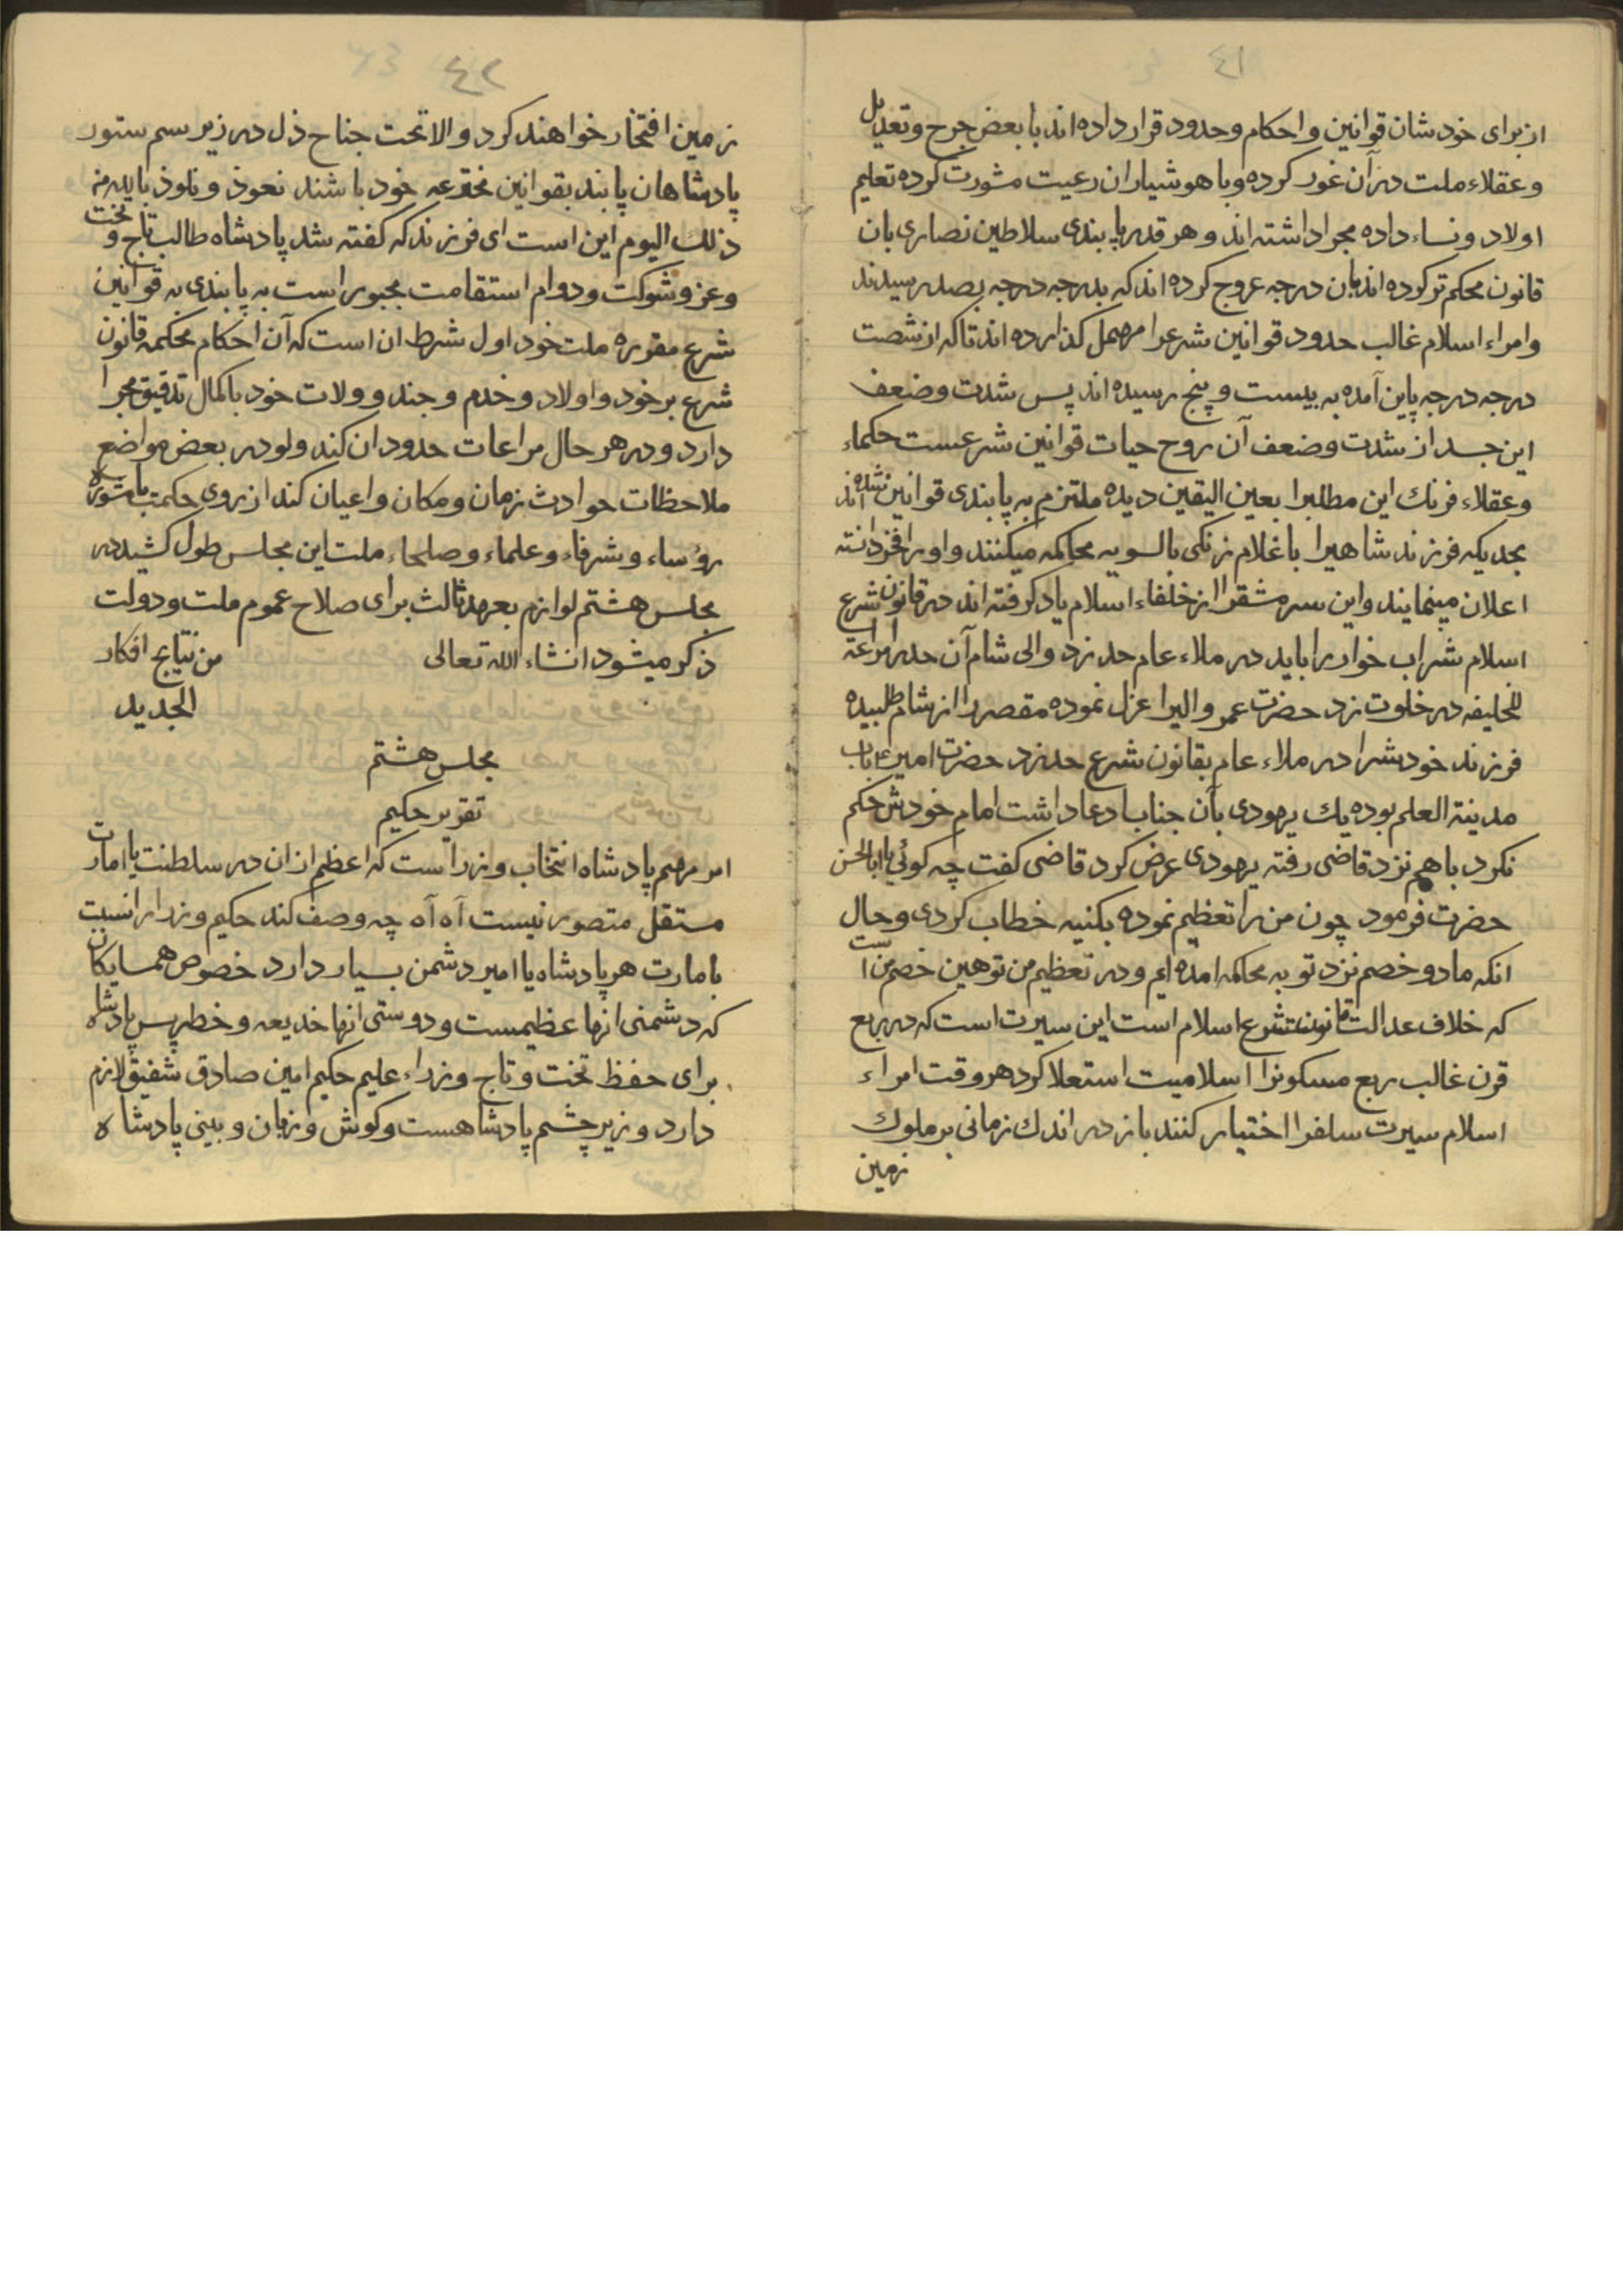 ٤١
از برای خودشان قوانین و احکام و حدود قرار داده اند با بعض جرح و تعدیل
و عقلاء ملت در آن غور کرده و با هوشیاران رعیت مشورت کرده تعلیم
اولاد و نساء داده مجرا داشته اند و هر قدر پابندی سلاطین نصاری بان
قانون محکم تر کرده اند بان درجه عروج کرده اند که بدرجه درجه بصد رسیدند
و امراء اسلام غالب حدود قوانین شرعرا مهمل کذارده اند تاکه از شصت
درجه درجه پاین آمده به بیست و پنج رسیده اند پس شدت و ضعف
این جسد از شدت و ضعف آن روح حیات قوانین شرعست حکماء
و عقلاء فرنك این مطلبرا بعین الیقین دیده ملتزم به پابندی قوانین شده اند
بحدیکه فرزند شاهیرا با غلام زنکی بالسویه محاکمه میکنند و اورا فخر دانسته
اعلان مینمایند و این سرمشقرا از خلفاء اسلام یاد کرفته اند در قانون شرع
اسلام شراب خوار را باید در ملاء عام حد زد والی شام آن حد را مراعتا
للخلیفه در خلوت زد حضرت عمر والیرا عزل نموده مقصر را از شام طلبیده
فرزند خودشرا در ملاء عام بقانون شرع حد زد حضرت امیر ع باب
مدینة العلم بوده یك یهودی بآن جناب ادعا داشت امام خودش حکم
نکرد باهم نزد قاضی رفته یهودی عرض کرد قاضی کفت چه کوئی یا ابا الحسن
حضرت فرمود چون من را تعظیم نموده بکنیه خطاب کردی و حال
انکه ما دو خصم نزد تو به محاکمه امده ایم و در تعظیم من توهین خصم من است
که خلاف عدالت قانون شرع اسلام است این سیرت است که در ربع
قرن غالب ربع مسکونرا اسلامیت استعلا کرد هر وقت امراء
اسلام سیرت سلفرا اختیار کنند باز در اندك زمانی بر ملوك
زمین
٤٢
زمین افتخار خواهند کرد والا تحت جناح ذل در زیر سم ستور
پادشاهان پابند بقوانین مخترعه خود باشند نعوذ و نلوذ بالله من
ذلك الیوم این است ای فرزند که کفته شد پادشاه طالب تاج و تخت
و عز و شوکت و دوام استقامت مجبور است به پابندی به قوانین
شرع مقرره ملت خود اول شرط ان است که آن احکام محکمه قانون
شرع بر خود و اولاد و خدم و جند و ولات خود با کمال تدقیق مجرا
دارد و در هر حال مراعات حدود ان کند ولو در بعض مواضع
ملاحظات حوادث زمان و مکان و اعیان کند از روی حکمت با مشوره
رؤساء و شرفاء و علماء و صلحاء ملت این مجلس طول کشید در
مجلس هشتم لوازم بعهد ثالث برای صلاح عموم ملت و دولت
ذکر میشود انشاء الله تعالی من نتایج افکار
الجدید
مجلس هشتم
تقریر حکیم
امر مهم پادشاه انتخاب وزراست که اعظم از ان در سلطنت یا امارت
مستقل متصور نیست آه آه چه وصف کند حکیم وزرا را نسبت
بامارت هر پادشاه یا امیر دشمن بسیار دارد خصوص همسایکان
که دشمنی انها عظیمست و دوستی انها خدیعه و خطر پس پادشاه
برای حفظ تخت و تاج وزراء علیم حکیم امین صادق شفیق لازم
دارد وزیر چشم پادشاهست و کوش و زبان و بینی پادشاه